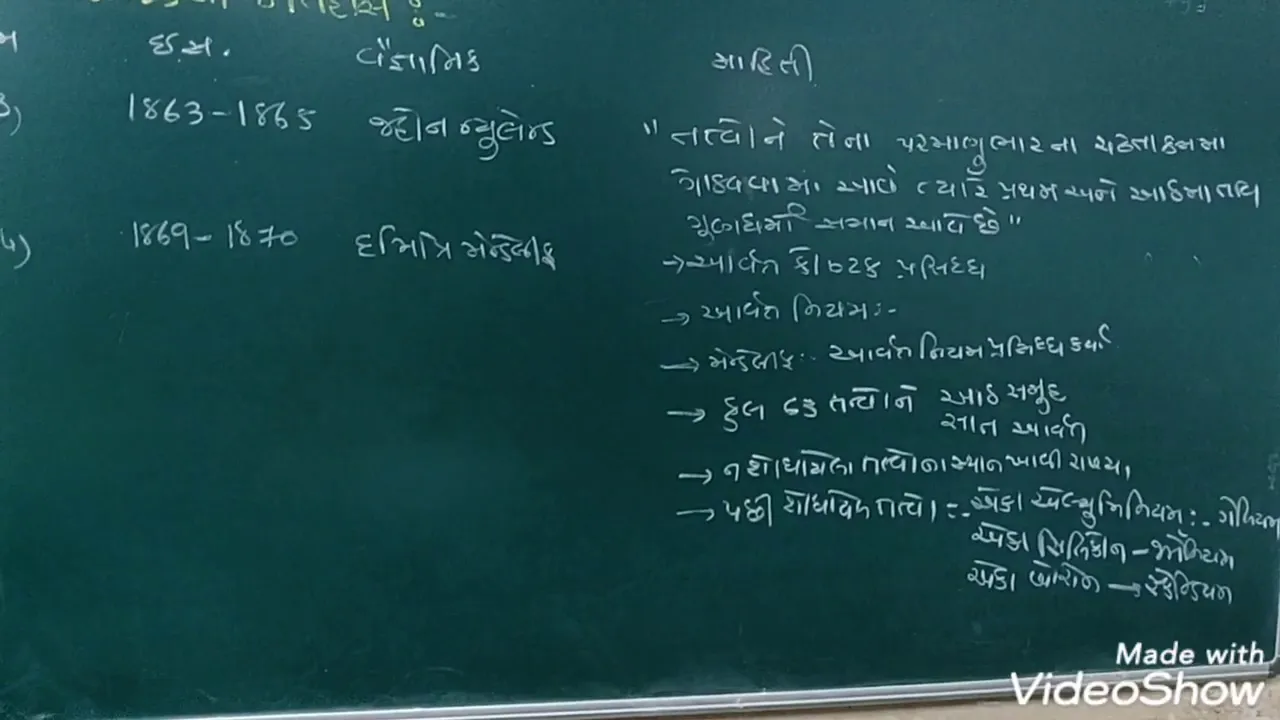 ઇતિહાસ :-
ઇ.સ. વૈજ્ઞાનિક માહિતી
3) 1863-1865 જ્હોન ન્યુલેન્ડ "તત્વોને તેના પરમાણુભારના ચઢતાક્રમમા
ગોઠવવામાં આવે ત્યારે પ્રથમ અને આઠમા તત્વ
ગુણધર્મા સમાન આવે છે"
1869-1870 દમિત્રિ મેન્ડેલીફ →આર્વત કોષ્ટક પ્રસિધ્ધ
→ આર્વત નિયમ:-
→ મેન્ડેલીફ:- આર્વત નિયમ પ્રસિધ્ધ કર્યા
→ કુલ ૬૩ તત્વોને આઠ સમુહ
સાત આર્વત
→ ન શોધાયેલા તત્વોના સ્થાન ખાલી રાખ્યા,
→ પછી શોધાયેલ તત્વો :- એકા એલ્યુમિનિયમ:- ગેલિયમ
એકા સિલિકોન - જર્મેનિયમ
એકા બોરોન → સ્કેન્ડિયમ
Made with
VideoShow